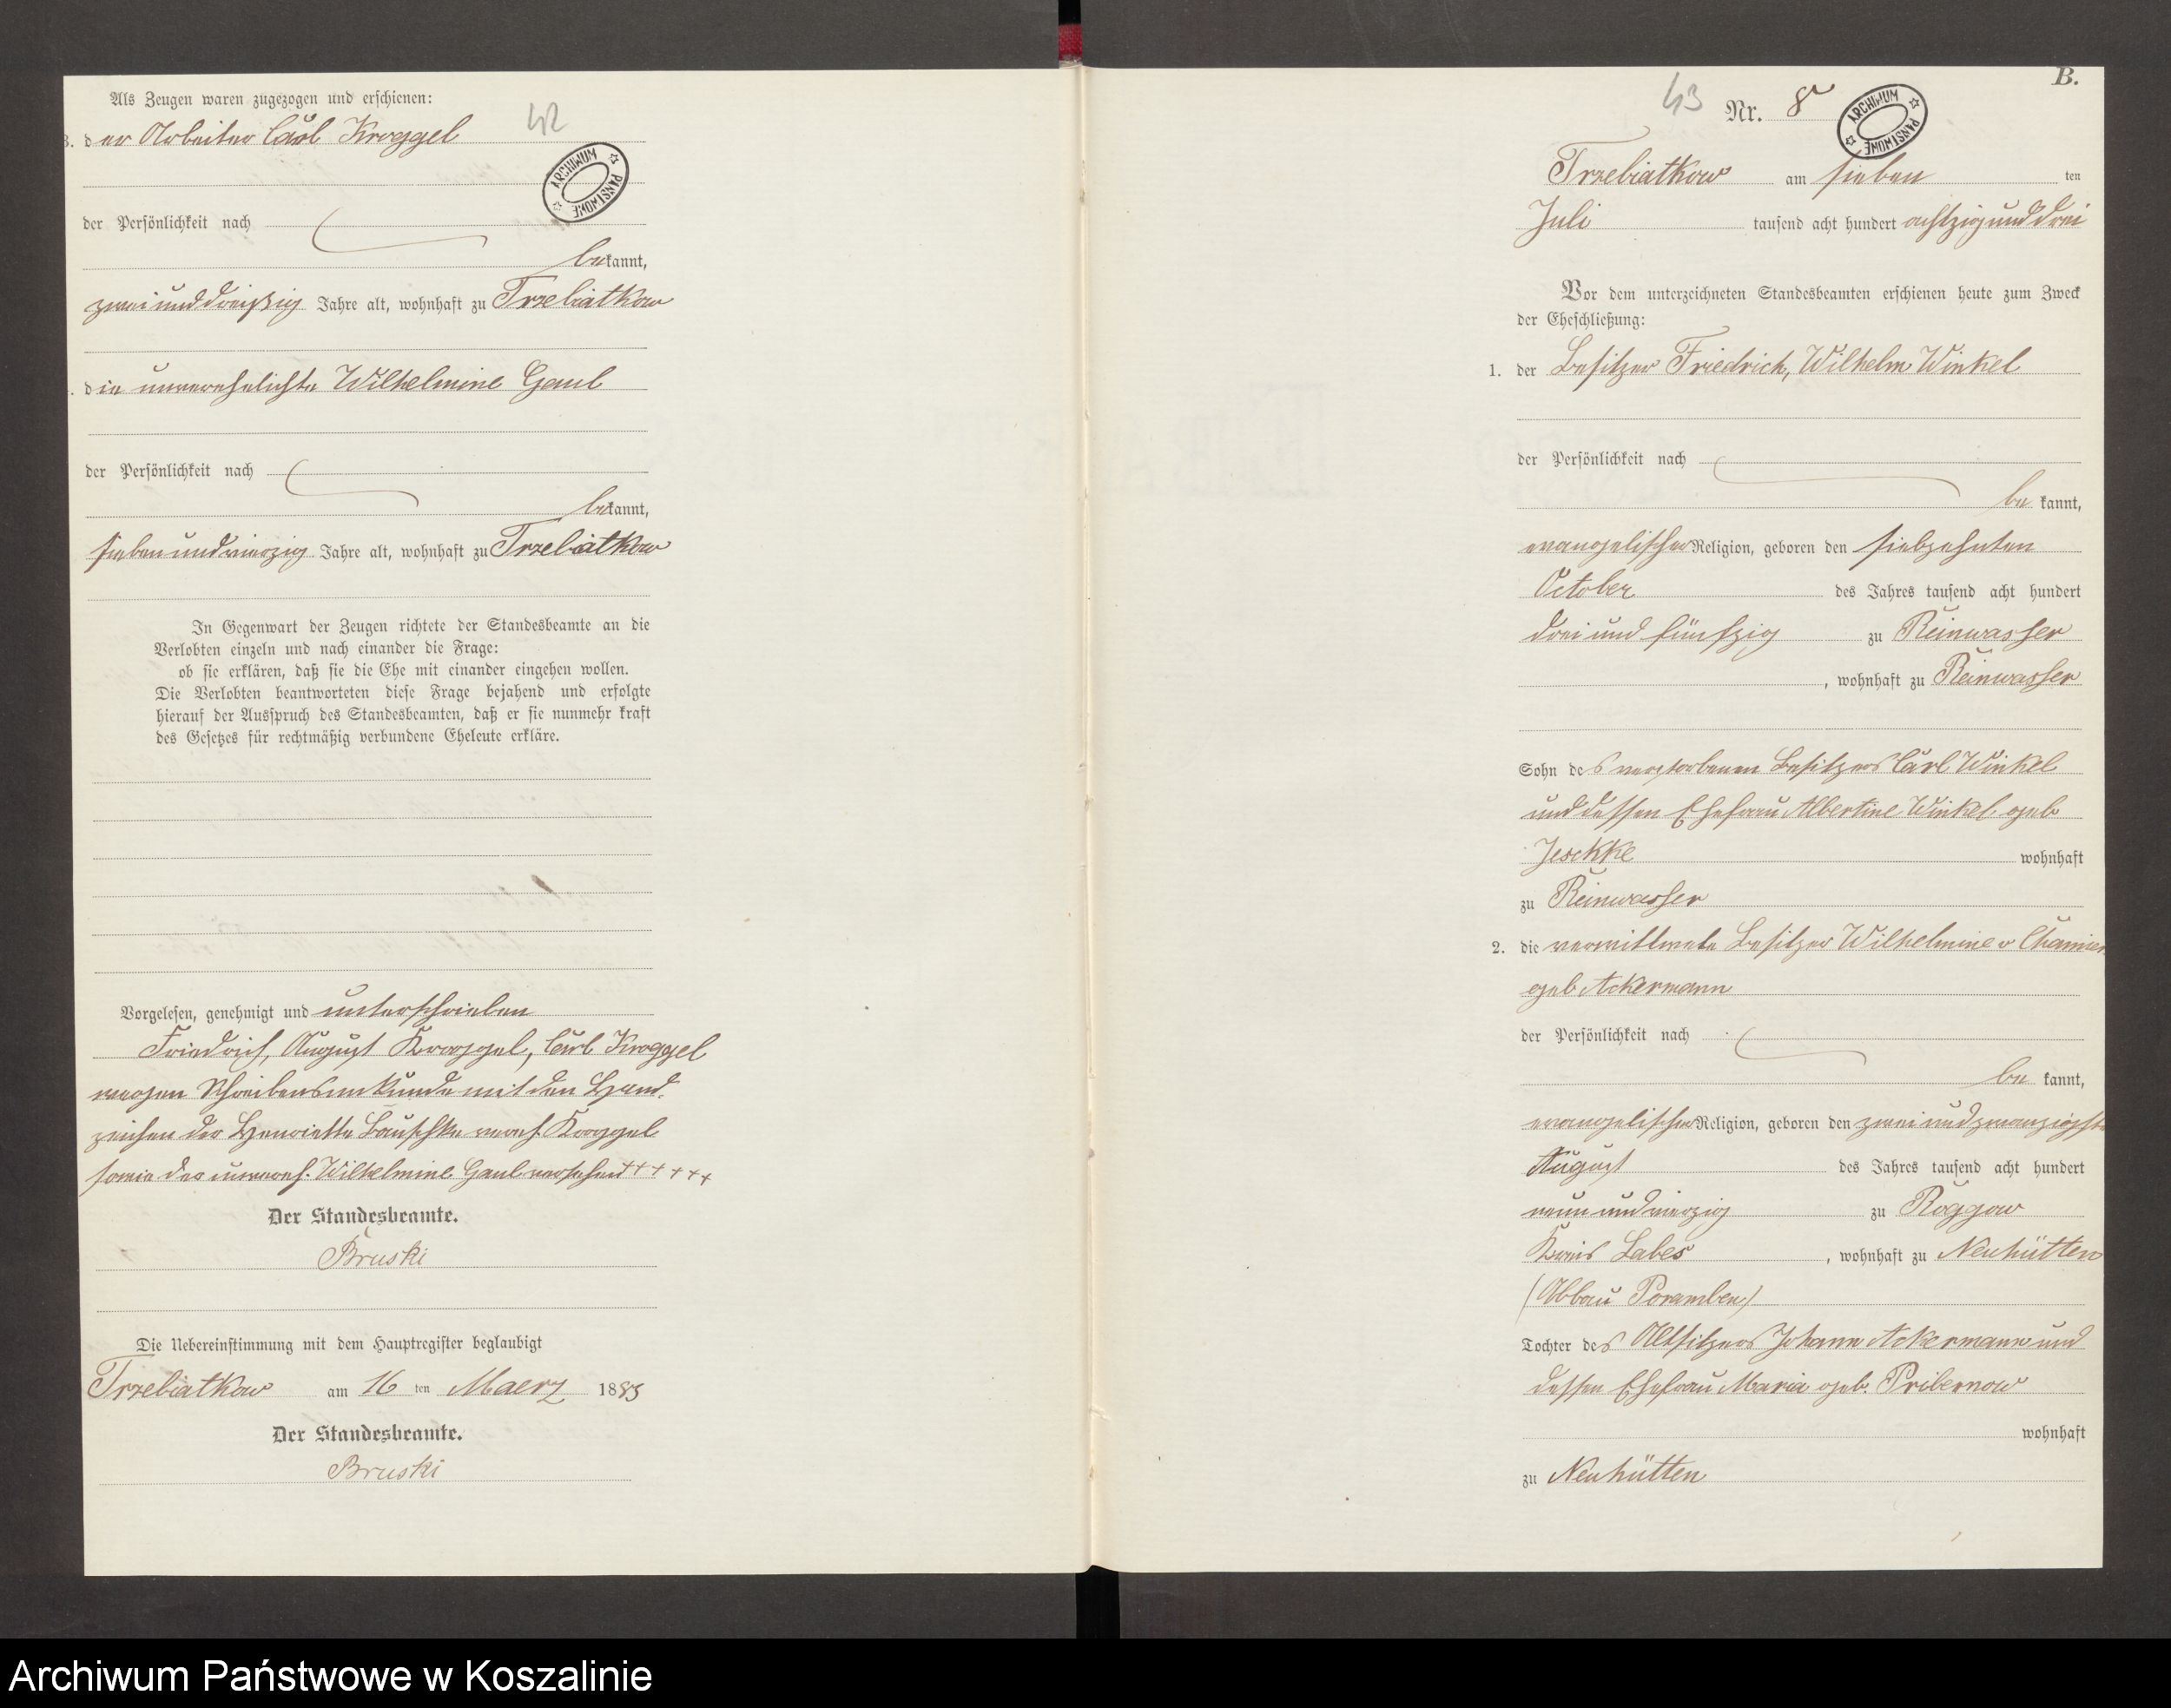 Als Zeugen waren zugezogen und erschienen:
42
3. der Arbeiter Carl Kroggel
ARCHIWUM PAŃSTWOWE
der Persönlichkeit nach
bekannt,
zwei und dreißig Jahre alt, wohnhaft zu Trzebiatkow
die unverehelichte Wilhelmine Gaul
der Persönlichkeit nach
bekannt,
sieben und vierzig Jahre alt, wohnhaft zu Trzebiatkow
In Gegenwart der Zeugen richtete der Standesbeamte an die
Verlobten einzeln und nach einander die Frage:
ob sie erklären, daß sie die Ehe mit einander eingehen wollen.
Die Verlobten beantworteten diese Frage bejahend und erfolgte
hierauf der Ausspruch des Standesbeamten, daß er sie nunmehr kraft
des Gesetzes für rechtmäßig verbundene Eheleute erkläre.
Vorgelesen, genehmigt und unterschrieben
Friedrich, August Kroggel, Carl Kroggel
wegen Schreibensunkunde mit den Hand-
zeichen der Henriette Bauschke vereh. Kroggel
sowie der unvereh. Wilhelmine Gaul versehen + + + + + +
Der Standesbeamte.
Bruski
Die Uebereinstimmung mit dem Hauptregister beglaubigt
Trzebiatkow am 16 ten Maerz 1883
Der Standesbeamte.
Bruski
B.
43 Nr. 8
ARCHIWUM PAŃSTWOWE
Trzebiatkow am sieben ten
Juli tausend acht hundert achtzig und drei
Vor dem unterzeichneten Standesbeamten erschienen heute zum Zweck
der Eheschließung:
1. der Besitzer Friedrich, Wilhelm Winkel
der Persönlichkeit nach
be kannt,
evangelischer Religion, geboren den siebzehnten
October des Jahres tausend acht hundert
drei und fünfzig zu Reinwasser
, wohnhaft zu Reinwasser
Sohn des verstorbenen Besitzers Carl Winkel
und dessen Ehefrau Albertine Winkel geb
Jeschke wohnhaft
zu Reinwasser
2. die verwittwete Besitzer Wilhelmine v Chamier
geb Ackermann
der Persönlichkeit nach
be kannt,
evangelischer Religion, geboren den zwei und zwanzigsten
August des Jahres tausend acht hundert
neun und vierzig zu Roggow
Kreis Labes , wohnhaft zu Neuhütten
(Abbau Poramben)
Tochter des Altsitzers Johann Ackermann und
dessen Ehefrau Maria geb. Pribernow
wohnhaft
zu Neuhütten
Archiwum Państwowe w Koszalinie